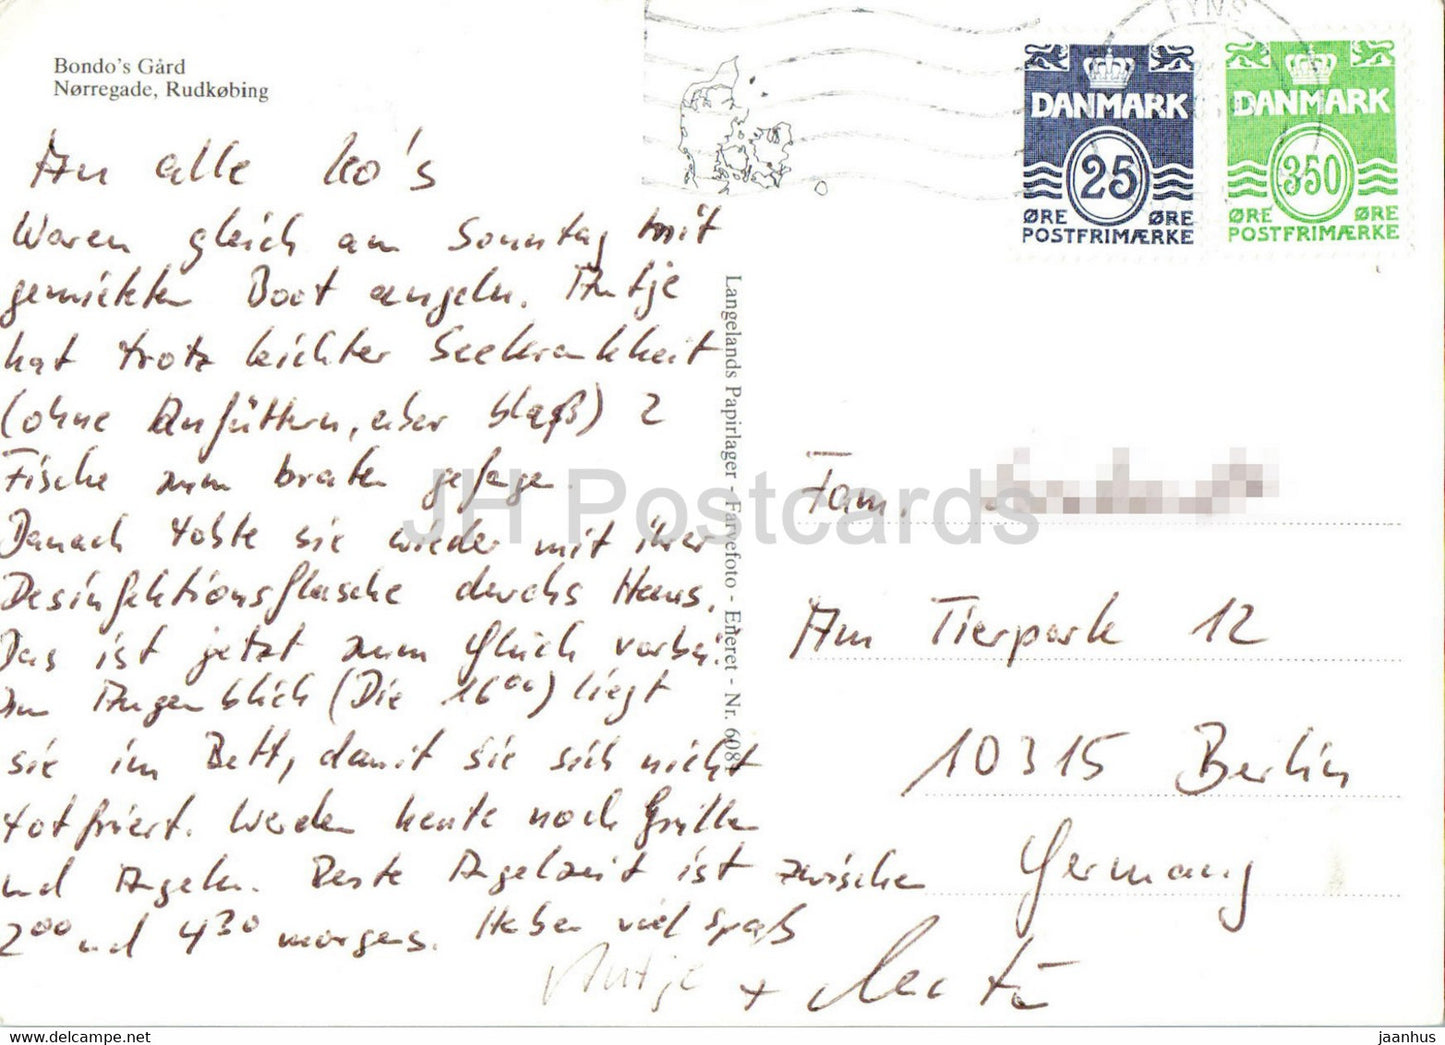 Bondo's Gård
Nørregade, Rudkøbing
FYNS
DANMARK
25
ØRE ØRE
POSTFRIMÆRKE
DANMARK
350
ØRE ØRE
POSTFRIMÆRKE
An alle Leo's
Waren gleich am Sonntag mit
gemieteten Boot angeln. Antje
hat trotz leichter Seekrankheit
(ohne Anfüttern, aber blaß) 2
Fische zum braten gefagen.
Danach tobte sie wieder mit ihrer
Desinfektionsflasche durchs Haus.
Das ist jetzt zum Glück vorbei.
Im Augenblick (Die 16⁰⁰) liegt
sie im Bett, damit sie sich nicht
totfriert. Werden heute noch Grillen
und Angeln. Beste Angelzeit ist zwischen
2⁰⁰ und 4³⁰ morgens. Haben viel spaß
Antje +
Langelands Papirlager - Farvefoto - Eneret - Nr. 608
Fam.
Am Tierpark 12
10315 Berlin
Germany
JH Postcards
jaanhus.com
jaanhus